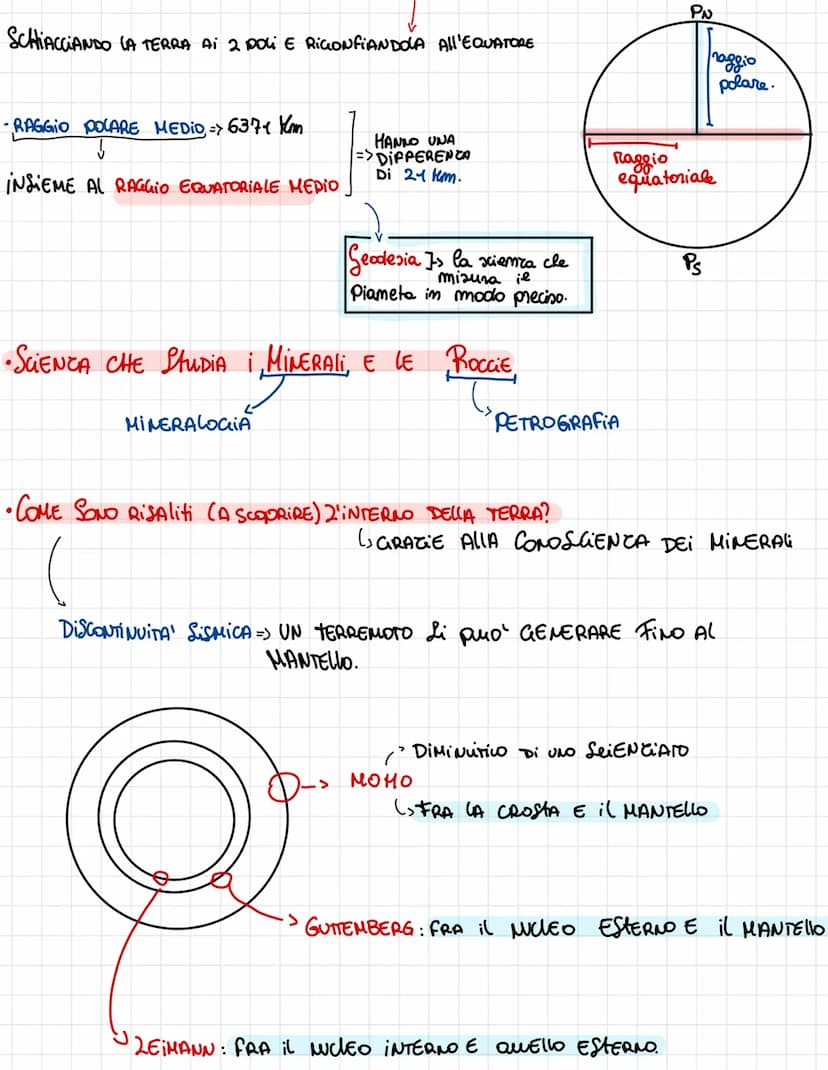 SCHIACCIANDO LA TERRA AI 2 POLI E RIGONFIANDOLA ALL'EQUATORE
PN
raggio
polare.
- RAGGIO POLARE MEDIO => 6371 Km
INSIEME AL RAGGIO EQUATORIALE MEDIO
HANNO UNA
=> DIFFERENZA
DI 21 Km.
raggio
equatoriale
PS
Geodesia ]-> la scienza che
misura il
Pianeta in modo preciso.
• SCIENZA CHE STUDIA I MINERALI E LE ROCCIE
MINERALOGIA
PETROGRAFIA
• COME SONO RISALITI (A SCOPRIRE) L'INTERNO DELLA TERRA?
GRAZIE ALLA CONOSCIENZA DEI MINERALI
DISCONTINUITA' SISMICA => UN TERREMOTO SI PUO' GENERARE FINO AL
MANTELLO.
DIMINUTICO DI UNO SCIENZIATO
MOHO
FRA LA CROSTA E IL MANTELLO
GUTTEMBERG: FRA IL NUCLEO ESTERNO E IL MANTELLO
LEIMANN: FRA IL NUCLEO INTERNO E QUELLO ESTERNO.